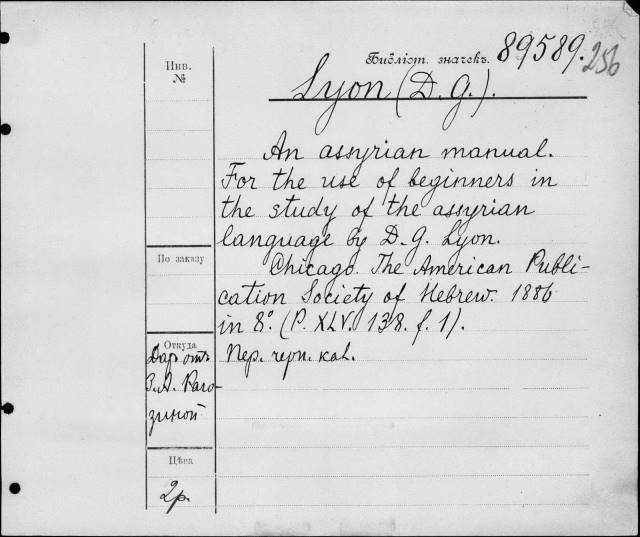 Библіот. значекъ. 89589. 256
Инв.
№
Lyon (D. G.).
An assyrian manual.
For the use of beginners in
the study of the assyrian
language by D. G. Lyon.
По заказу
Chicago. The American Publi-
cation Society of Hebrew. 1886
in 8º. (P. XLV. 138. f. 1).
Откуда
Даръ отъ
З. А. Раго-
зиной
Пер. черн. кол.
Цѣна
2р.